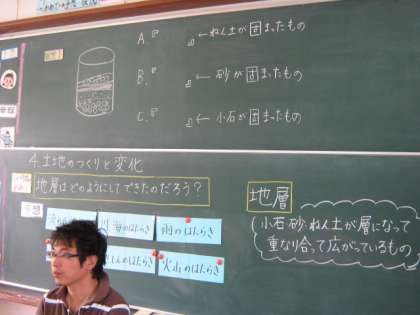 A. 『　　』←ねん土が固まったもの
B. 『　　』←砂が固まったもの
C. 『　　』←小石が固まったもの
4. 土地のつくりと変化
地層はどのようにしてできたのだろう？
予想
川 海のはたらき
雨のはたらき
火山のはたらき
地層
小石・砂・ねん土が層になって
重なり合って広がっているもの